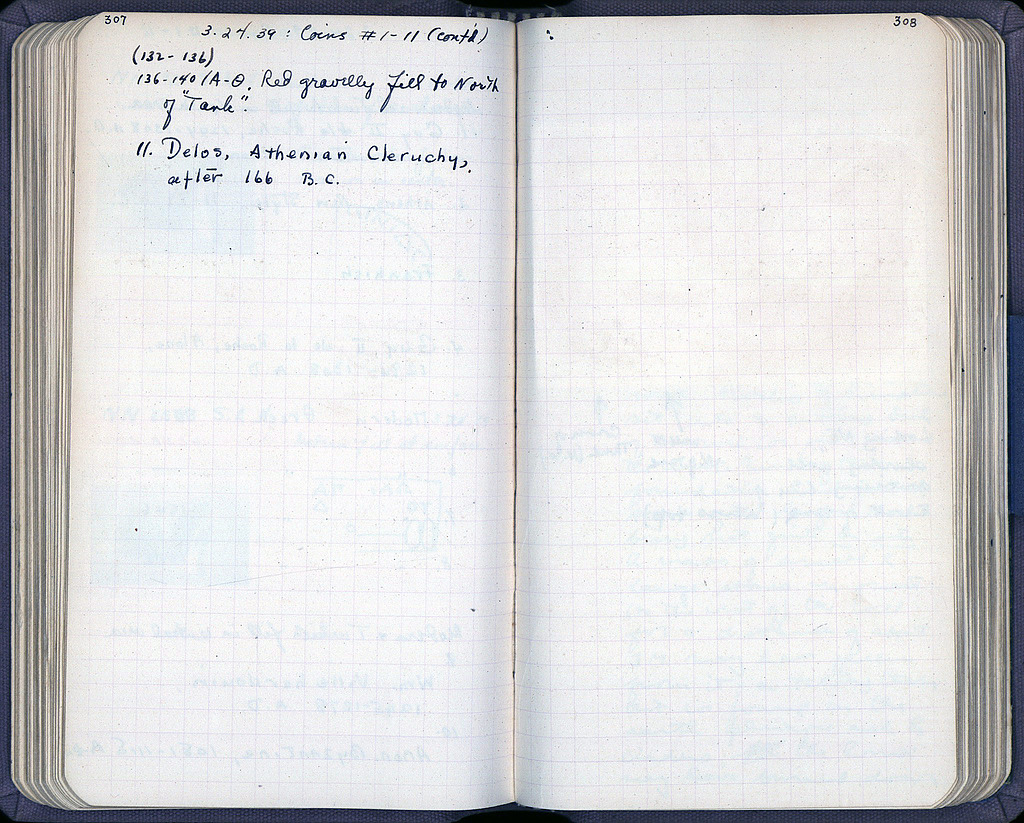 307
3.24.39: Coins #1-11 (cont'd)
(132-136)
136-140/A-Θ. Red gravelly fill to North
of "Tank".
11. Delos, Athenian Cleruchy,
after 166 B.C.
308